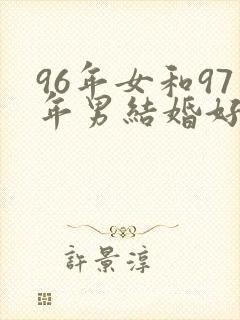 96年女和97
年男結婚好
許景淳